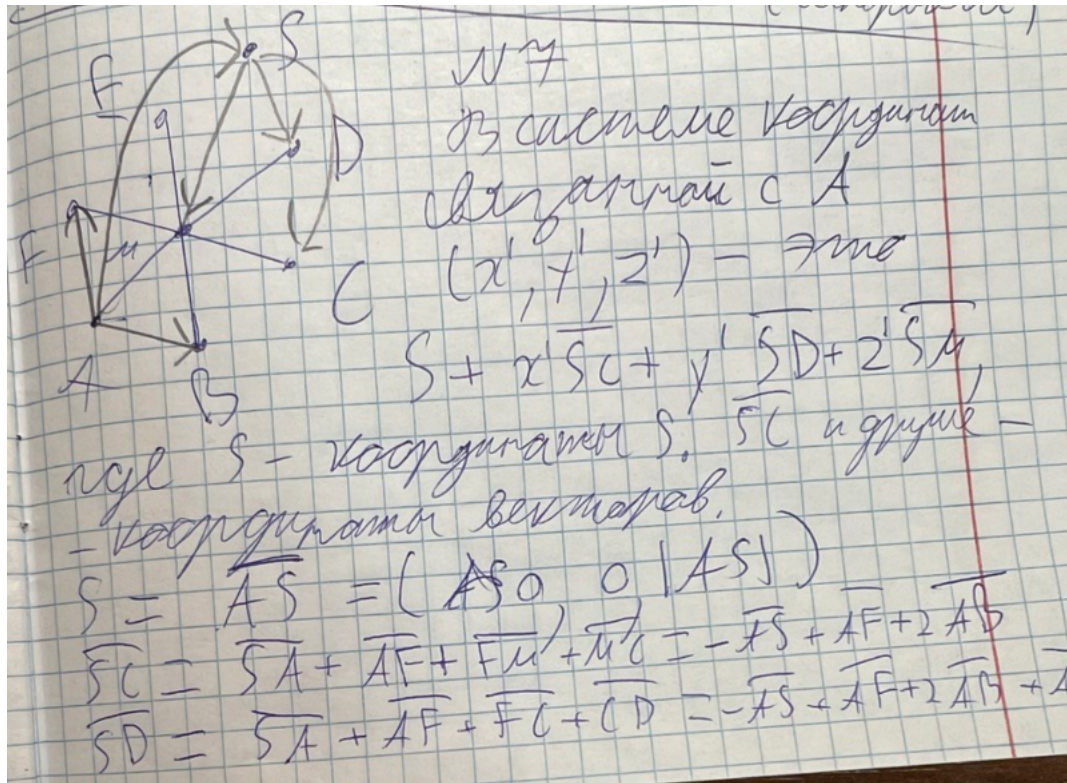 S
N 7
E
В системе координат
D
связанной с A
F
M
(x', y', z') – это
C
A
B
S + x' \overline{SC} + y' \overline{SD} + z' \overline{SM},
где S – координаты S. \overline{SC} и другие –
– координаты векторов.
S = \overline{AS} = (0, 0, |AS|)
\overline{SC} = \overline{SA} + \overline{AF} + \overline{FM} + \overline{MC} = -\overline{AS} + \overline{AF} + 2\overline{AB}
\overline{SD} = \overline{SA} + \overline{AF} + \overline{FC} + \overline{CD} = -\overline{AS} + \overline{AF} + 2\overline{AB} +